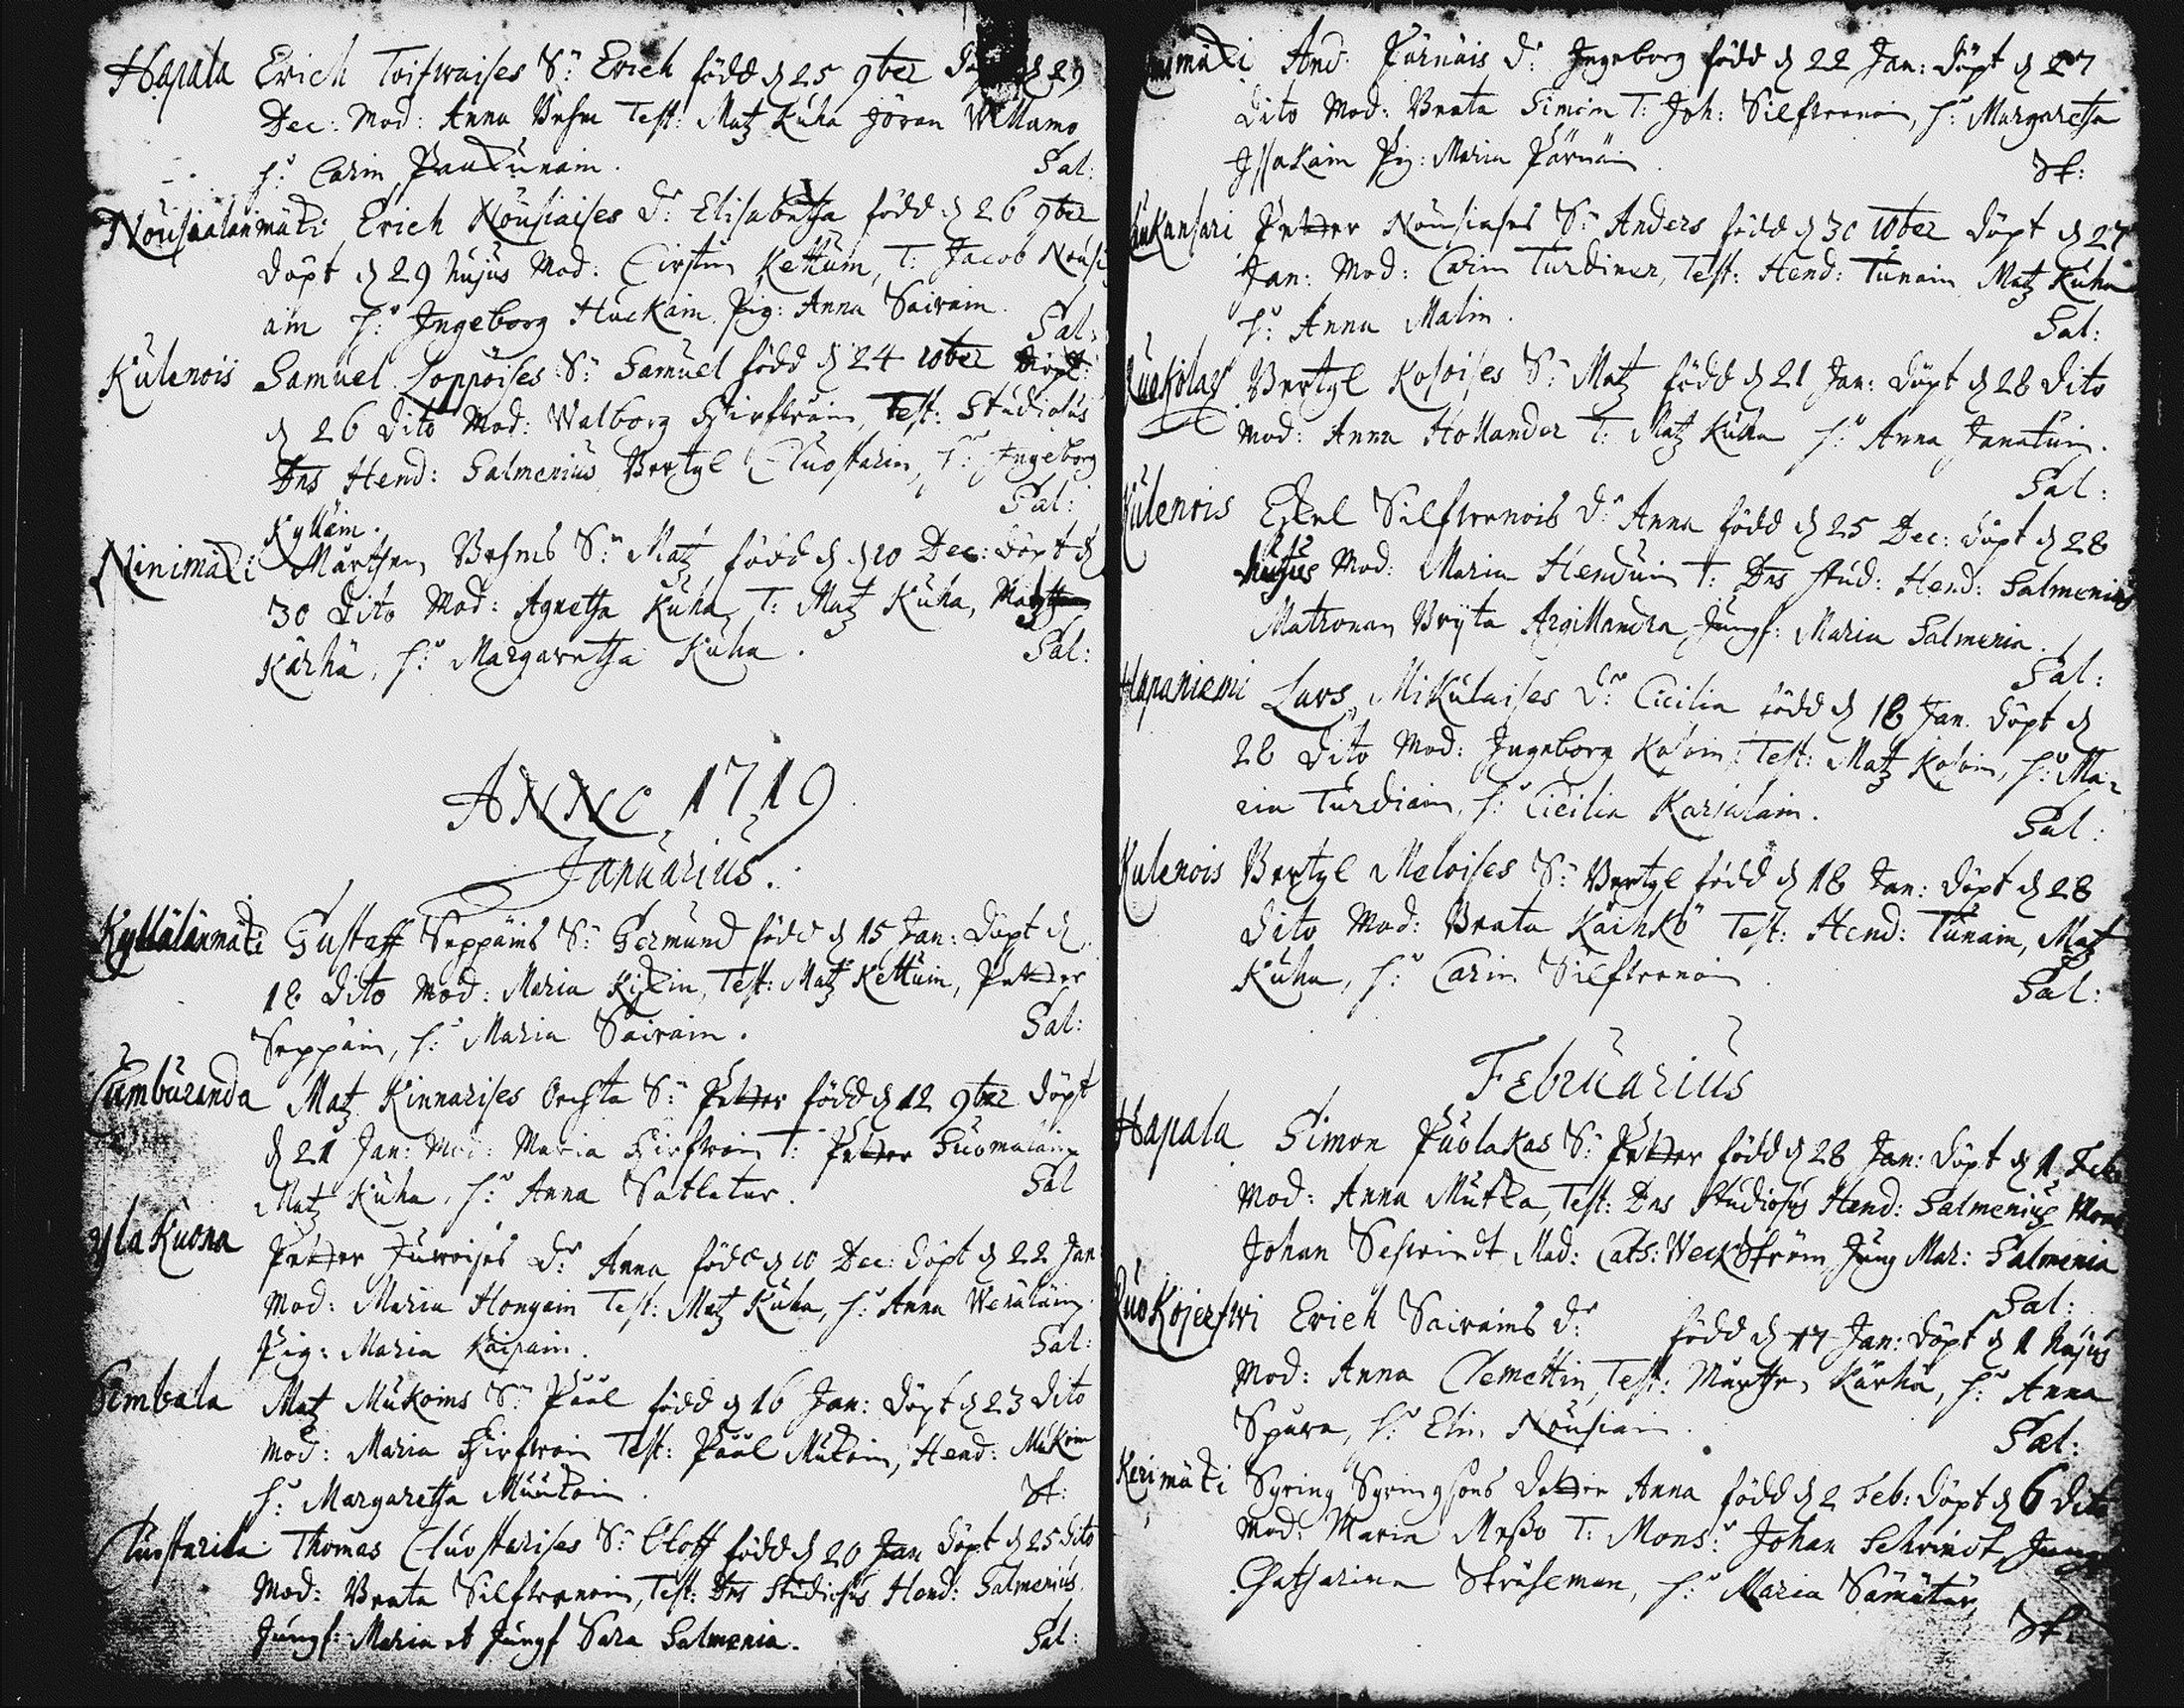 Hapala Erich Toifwaises S: Erich född d 25 9ber d 29
Dec: Mod: Anna Behm Test: Matz Kuha Jöran Willamo
h: Carin Paukunain. Sal:
Nousialanmäki Erich Nousiaises d: Elisabetha född d 26 9ber
döpt d 29 hujus Mod: Cirstin Kettuin, T: Jacob Nousi
ain h: Ingeborg Huckain Pig: Anna Sairain. Sal:
Kulenois Samuel Loppoises S: Samuel född d 24 10ber döpt
d 26 dito Mod: Walborg Hirfwäin, Test: Studiosus
Dns Hend: Salmenius Bertyl Cluostarin, h: Ingeborg
Kylläin. Sal:
Ninimäki Mårthen Behms S: Matz född d 20 Dec: döpt d
30 dito Mod: Agnetha Kuha, T: Matz Kuha,
Kärhä, h: Margaretha Kuha. Sal:
ANNO 1719
Januarius.
Kyllälänmäki Gustaff Seppäins S: Germund född d 15 Jan: döpt d
18 dito Mod: Maria Kixin, Test: Matz Kettuin, Petter
Seppäin, h: Maria Sairain. Sal:
Cumburanda Matz Kinnarises S: Petter född d 12 9ber döpt
d 21 Jan: Mod: Maria Hirfwoin T: Petter Suomalain
Matz Kuha, h: Anna Satlatar. Sal
Yla Kuona Petter Juwoises d: Anna född d 10 Dec: döpt d 22 Jan
Mod: Maria Hongain Test: Matz Kuha, h: Anna Wenäläin
Pig: Maria Kaipain. Sal:
Simbala Matz Mukoins S: Påål född d 16 Jan: döpt d 23 dito
Mod: Maria Hirfwoin Test: Påål Mukoin, Hend: Mukoin
h: Margaretha Muukoin. St:
Cluostarila Thomas Cluostarises S: Oloff född d 20 Jan döpt d 25 dito
Mod: Beata Silfwenoin, Test: Dns Studiosus Hend: Salmenius
Jungf: Maria et Jungf Sara Salmenia. Sal:
nimäki And: Pärnäis d: Ingeborg född d 22 Jan: döpt d 27
dito Mod: Beata Simoin T: Joh: Silfwenoin, h: Margaretha
Issakain Pig: Maria Pärnäin St:
aukansari Petter Nousiases S: Anders född d 30 10ber döpt d 27
Jan: Mod: Carin Turdiner, Test: Hend: Tunain Matz Kuha
h: Anna Malin. Sal:
Ruokolax Bertyl Kosoises S: Matz född d 21 Jan: döpt d 28 dito
Mod: Anna Hollander T: Matz Kuha h: Anna Janatuin. Sal:
Kulenois Eskel Silfwenois d: Anna född d 25 Dec: döpt d 28
hujus Mod: Maria Henduin T: Dns stud: Hend: Salmenius
Matronan Bryta Argillandra, Jungf: Maria Salmenia. Sal:
Hapaniemi Lars Mikulaises d: Cicilia född d 18 Jan. döpt d
28 dito Mod: Ingeborg Kosoin, Test: Matz Kosoin, h: Ma=
ria Turdiain, h: Cicilia Karjalain. Sal:
Kulenois Bertyl Meloises S: Bertyl född d 18 Jan: döpt d 28
dito Mod: Beata Käinkö Test: Hend: Tunain, Matz
Kuha, h: Carin Silfwenoin. Sal:
Februarius
Hapala Simon Puolakas S: Petter född d 28 Jan: döpt d 1 Feb
Mod: Anna Mutka, Test: Dns Studiosus Hend: Salmenius Mons
Johan Schwindt, Mad: Cath: Weckström, Jung Mar: Salmenia Sal:
Ruokojerfwi Erich Sairains d: född d 17 Jan: döpt d 1 hujus
Mod: Anna Clemettin, Test: Mårthen Kärhä, h: Anna
Spåra, h: Elin Nousiain. Sal:
Kerimäki Syring Syringsons detter Anna född d 2 Feb: döpt d 6 dito
Mod: Maria T: Mons: Johan Schwindt, Jungf
Chatharina Stråleman, h: Maria Sämätär St: